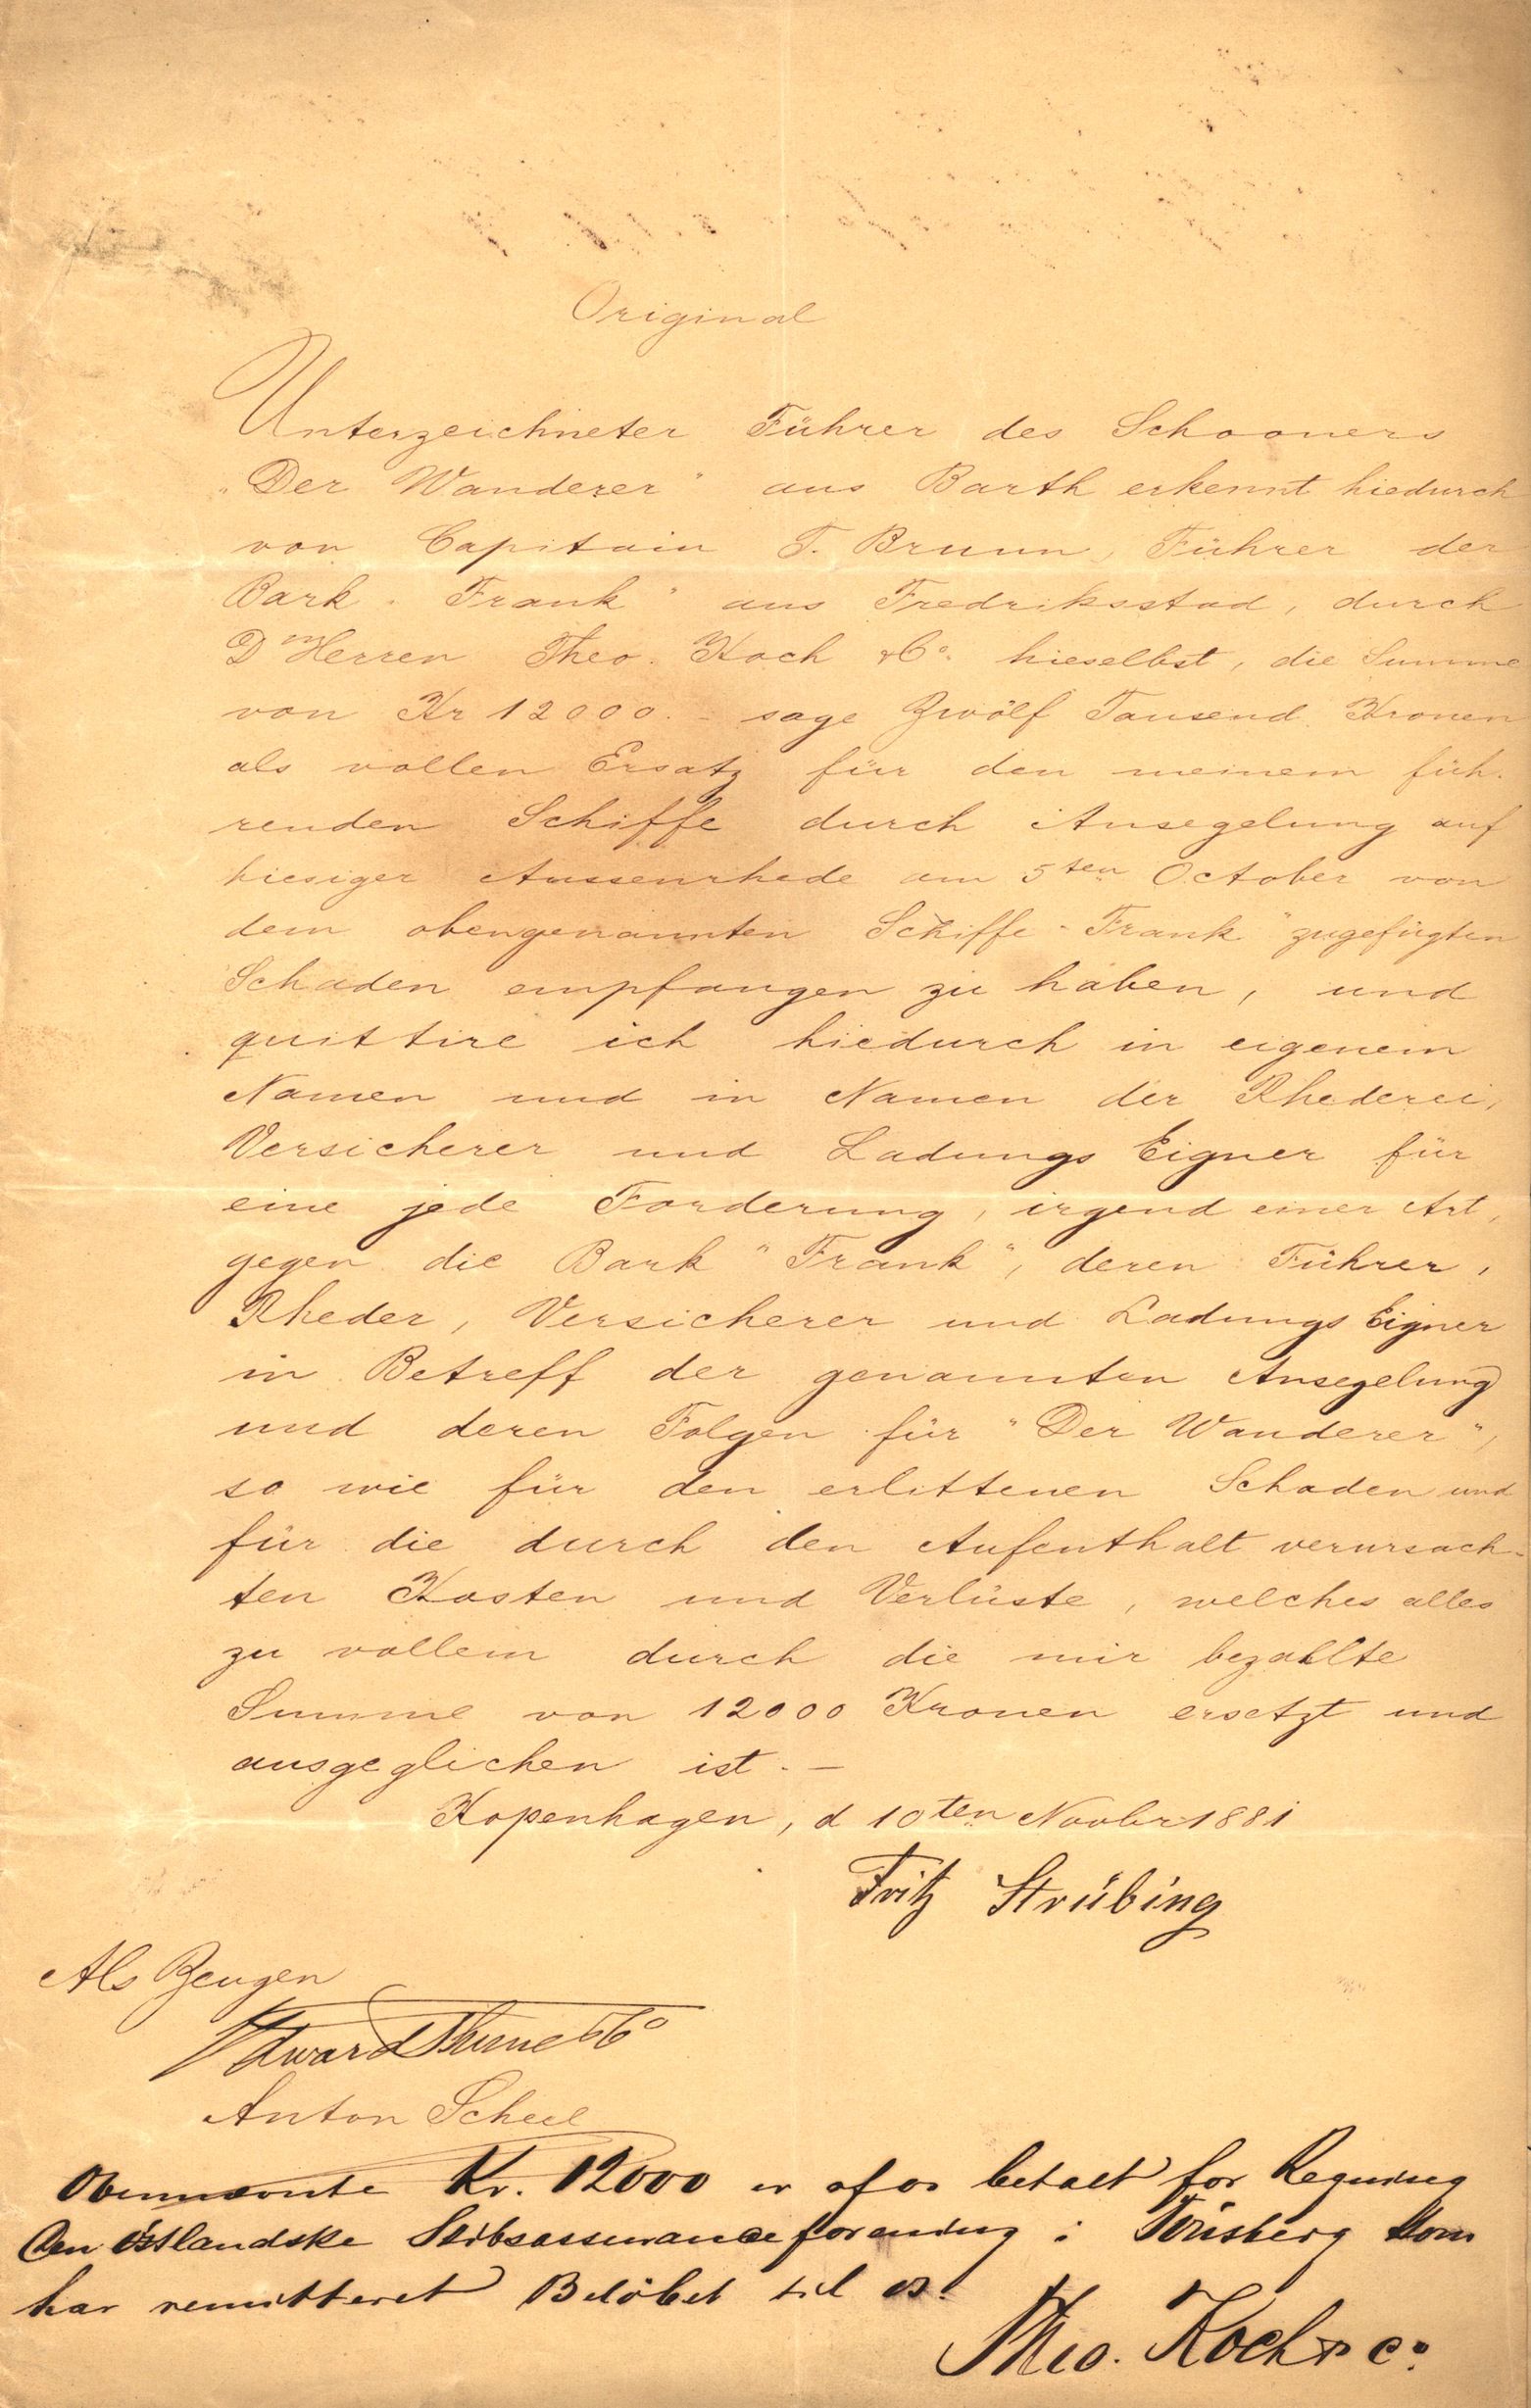 Original
Unterzeichneter Führer des Schooners
„Der Wanderer" aus Barth erkennt hiedurch
von Capitain T. Bruun, Führer der
Bark „Frank" aus Fredriksstad, durch
D Herren Theo. Koch & Co. hieselbst, die Summe
von Kr 12000.– sage Zwölf Tausend Kronen
als vollen Ersatz für den meinem füh-
renden Schiffe durch Ansegelung auf
hiesiger Aussenrhede am 5ten October von
dem obengenannten Schiffe „Frank" zugefügten
Schaden empfangen zu haben, und
quittire ich hiedurch in eigenem
Namen und in Namen der Rhederei,
Versicherer und Ladungs Eigner für
eine jede Forderung, irgend einer Art,
gegen die Bark "Frank", deren Führer,
Rheder, Versicherer und Ladungs Eigner
in Betreff der genannten Ansegelung
und deren Folgen für "Der Wanderer",
so wie für den erlittenen Schaden und
für die durch den Aufenthalt verursach-
ten Kosten und Verlüste, welches alles
zu vollem durch die mir bezahlte
Summe von 12000 Kronen ersetzt und
ausgeglichen ist.–
Kopenhagen, d 10ten Novbr 1881
Fritz Strübing
Als Zeugen
Anton Scheel
Ovennævnte Kr. 12000 er af os betalt for Regning
den østlandske Skibsassuranceforening i Tönsberg som
har remitteret Belöbet til os.
Theo. Koch & Co.